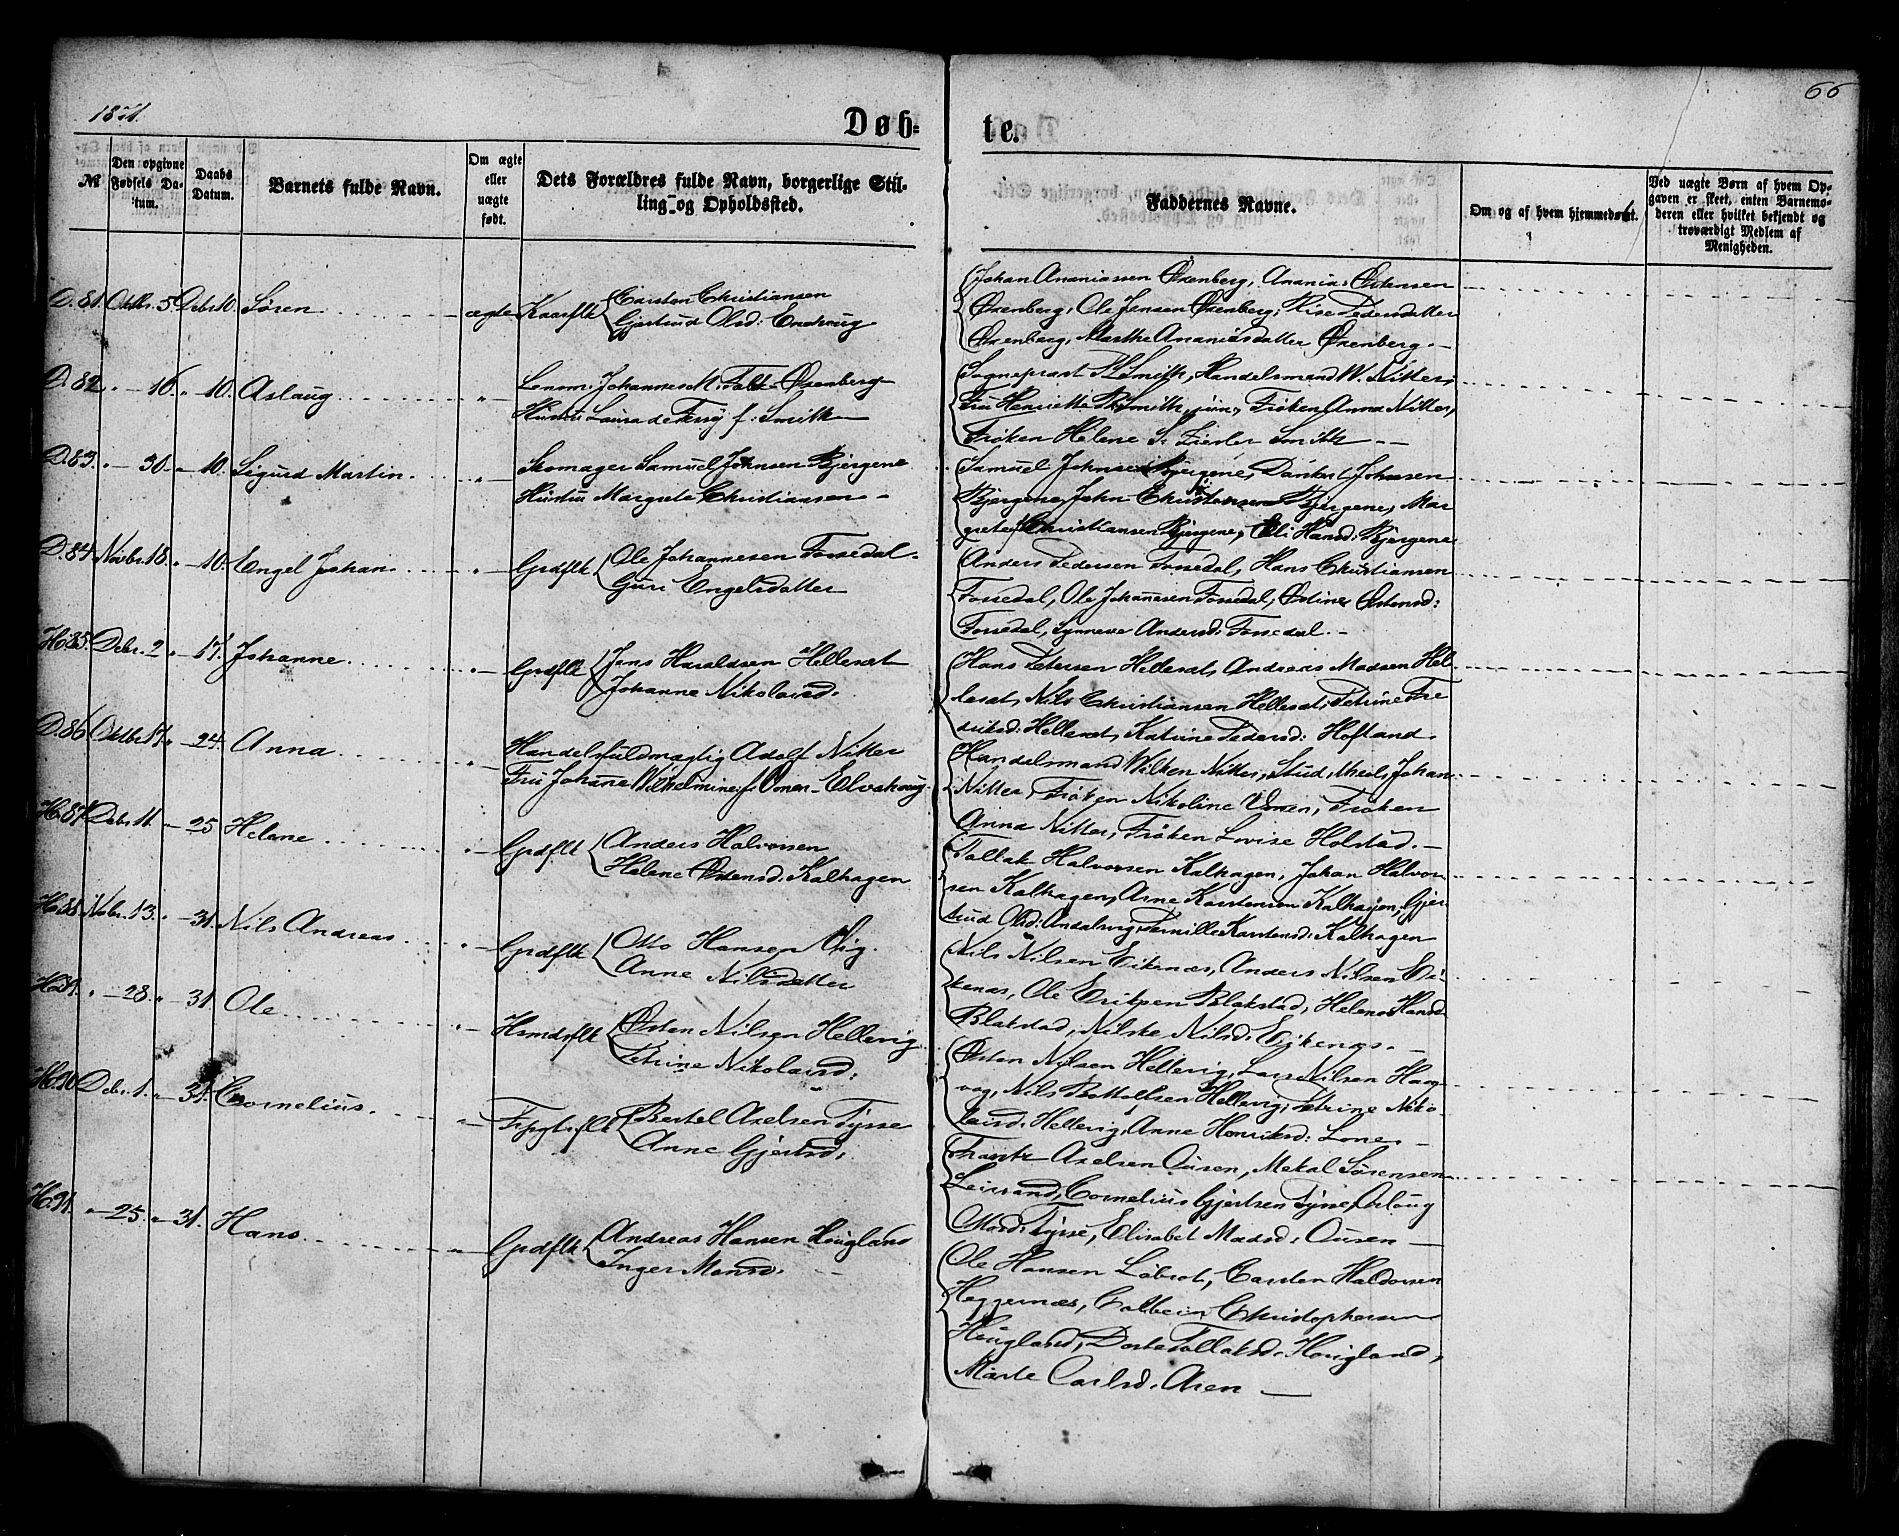 1871.
66
Døb-
te.
№
Den opgivne Fødsels Datum.
Daabs Datum.
Barnets fulde Navn.
Om ægte eller uægte født.
Dets Forældres fulde Navn, borgerlige Stilling og Opholdssted.
Faddernes Navne.
Om og af hvem hjemmedøbt.
Ved uægte Børn af hvem Opgaven er skeet, enten Barnemoderen eller hvilket bekjendt og troværdigt Medlem af Menigheden.
D. 81. Octbr. 5 Debr 10. Søren ægte Kaarflk Carsten Christiansen
Gjertrud Olsd:
Johan Ananiassen Øxenberg, Ananias Østensen
Øxenberg, Ole Jensen Øxenberg, Pedersdatter
Øxenberg, Marthe Ananiasdatter Øxenberg.
D. 82 " - 16 " - 10. Aslaug " Johannes M. Falk Øxenberg
Hustru Laura de f. Smith
Sogneprest Smith, Handelsmand W. Nitter,
Fru Henriette Smith, Frøken Anna Nitter,
Frøken Helene S. Smith
D. 83. " - 30 " 10. Sigurd Martin. " Skomager Samuel Johnsen Bjergene
Hustru Margrete Christiansen
Samuel Johnsen Bjergene, Dankert Johnsen
Bjergene, John Christiansen Bjergene, Mar
grete Christiansen Bjergene, Eli Hansd: Bjergene
D. 84 Novbr. 18. " - 10. Engel Johan " Grdflk Ole Johannesen Fossedal
Guri Engelsdatter
Anders Pedersen Fossedal, Hans Christiansen
Fossedal, Ole Johannesen Fossedal, Østine Østensd:
Fossedal, Synneve Andersd: Fossedal.
H. 85. Debr. 2 " - 17. Johanne " Grdflk Jens Haraldsen Hellesæt
Johanne Nikolaisd.
Hans Petersen Hellesæt, Andreas Madsen Hel
lesæt, Nils Christiansen Hellesæt, Petrine Fre
driksd: Hellesæt, Katrine Pedersd: Hofland.
D. 86 Oktbr 17 " - 24. Anna " Handelsfuldmægtig Adolf Nitter
Fru Johanne Wilhelmine f. Vonen - Elvakrog
Handelsmand Wilken Nitter, Stud. Med. Johan
Nitter, Frøken Nikoline Vonen, Frøken
Anna Nitter, Frøken Lovise Holstad.
H. 87 Debr 11. " - 25 Helene " Grdflk Anders Halvorsen
Helene Østensd: Kalhagen
Tollak Halvorsen Kalhagen, Johan Halvor
sen Kalhagen, Arne Karstensen Kalhagen, Gjer
trud Olsd: Andalsvig, Pernille Karstensd: Kalhagen
H. 88. Nobr. 13. " - 31. Nils Andreas " Grdflk Otto Hansen Vig.
Anne Nilsdatter
Nils Nilsen Eikenæs, Anders Nilsen Ei
kenæs, Ole Eriksen Blakstad, Helene Hansd.
Blakstad, Nilske Nilsd. Eikenæs.
H. 89. " - 28. " - 31. Ole " Hsmdsflk Østen Nilsen Hellevig
Petrine Nikolaisd:
Østen Nilsen Hellevig, Lars Nilsen Haug
vog, Nils Bottolfsen Hellevig, Petrine Niko
laisd. Hellevig, Anne Henriksd: Lone.
H. 90 Debr. 1. " - 31. Cornelius. " Bertel Axelsen Tysse
Anne Gjertsd.
Frantz Axelsen Ousen, Mekal Sørensen
Leirand, Cornelius Gjertsen Tysse, Aslaug
Tysse, Elisabet Madsd. Ousen
H. 91. " - 25. " - 31. Hans. " Grdflk Andreas Hansen Hougland
Inger Monsd.
Ole Hansen Løbrot, Carsten Haldorsen
Heggernæs, Christophersen
Hougland, Dorte Tollaksd. Hougland,
Marte Carlsd. Aren